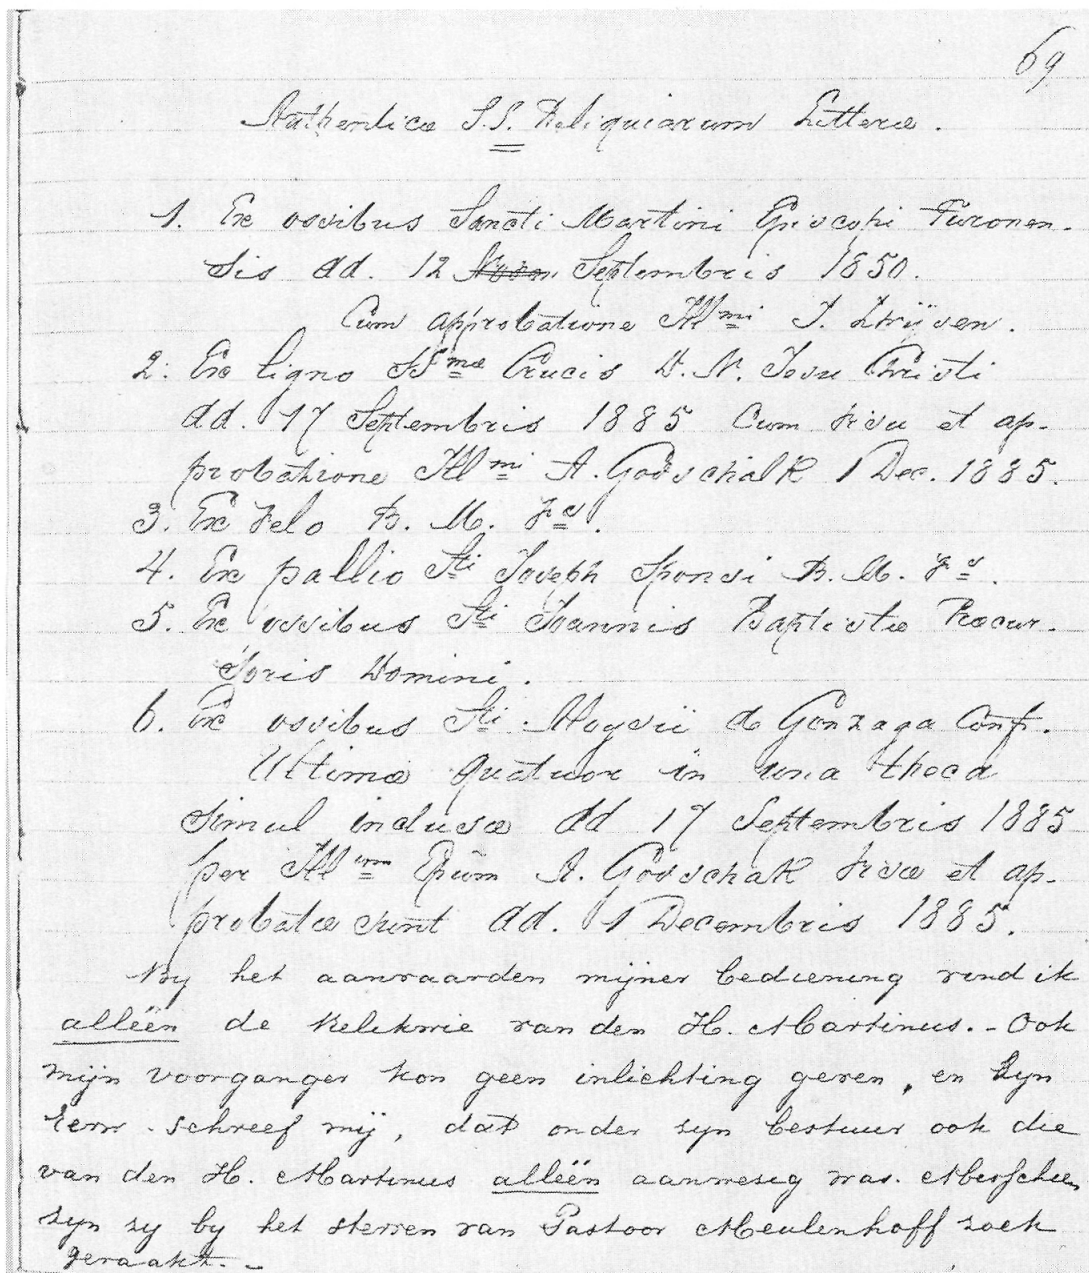 69
Authenticæ S.S. Reliquiarum Litteræ.
1. Ex ossibus Sancti Martini Episcopi Turonen-
sis dd. 12 Septembris 1850.
Cum approbatione Illmi J. Zwijsen.
2. Ex ligno SSmæ Crucis D. N. Jesu Christi
dd. 17 Septembris 1885 Cum visu et ap-
probatione Illmi A. Godschalk 1 Dec. 1885.
3. Ex velo B. M. Vs.
4. Ex pallio Sti Joseph Sponsi B. M. Vs.
5. Ex ossibus Sti Joannis Baptistæ Præcur-
soris Domini.
6. Ex ossibus Sti. Aloysii de Gonzaga Conf.
Ultimæ quatuor in una theca
simul inclusæ dd 17 Septembris 1885
per Illum Epūm A. Godschalk visæ et ap-
probatæ sunt dd. 1 Decembris 1885.
By het aanvaarden mijner bediening vond ik
alleën de Relikwie van den H. Martinus. - Ook
mijn voorganger kon geen inlichting geven, en Zyn
Eerw. schreef mij, dat onder zyn bestuur ook die
van den H. Martinus alleën aanwezig was. Misschien
zyn zy by het sterven van Pastoor Meulenhoff zoek
geraakt. -